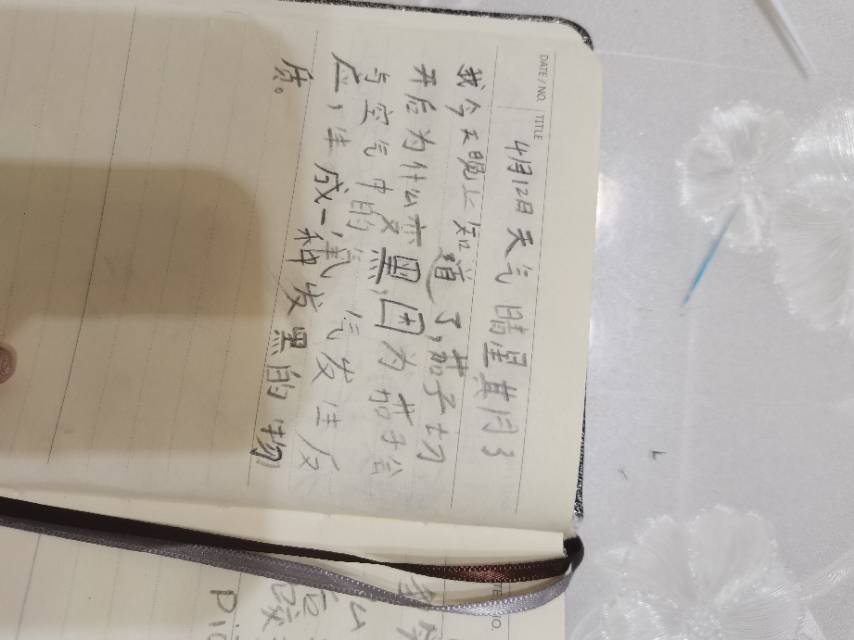 DATE / NO.
TITLE
4月12日 天气 晴 星期3
我今天晚上知道了,茄子切
开后为什么变黑,因为茄子会
与空气中的氧气发生反
应,生成一种发黑的物
质。